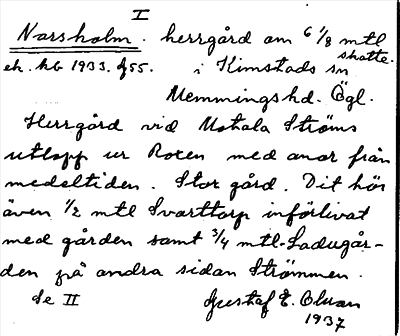 I
Norsholm. herrgård om 6 1/8 mtl
skatte.
ek. kb 1933. f55. i Kimstads sn
Memmings hd. Ögl.
Herrgård vid Motala Ströms
utlopp ur Roxen med anor från
medeltiden. Stor gård. Dit hör
även 1/2 mtl Svarttorp införlivat
med gården samt 3/4 mtl Ladugår-
den på andra sidan Strömmen.
Se II Gustaf E. Olsson
1937